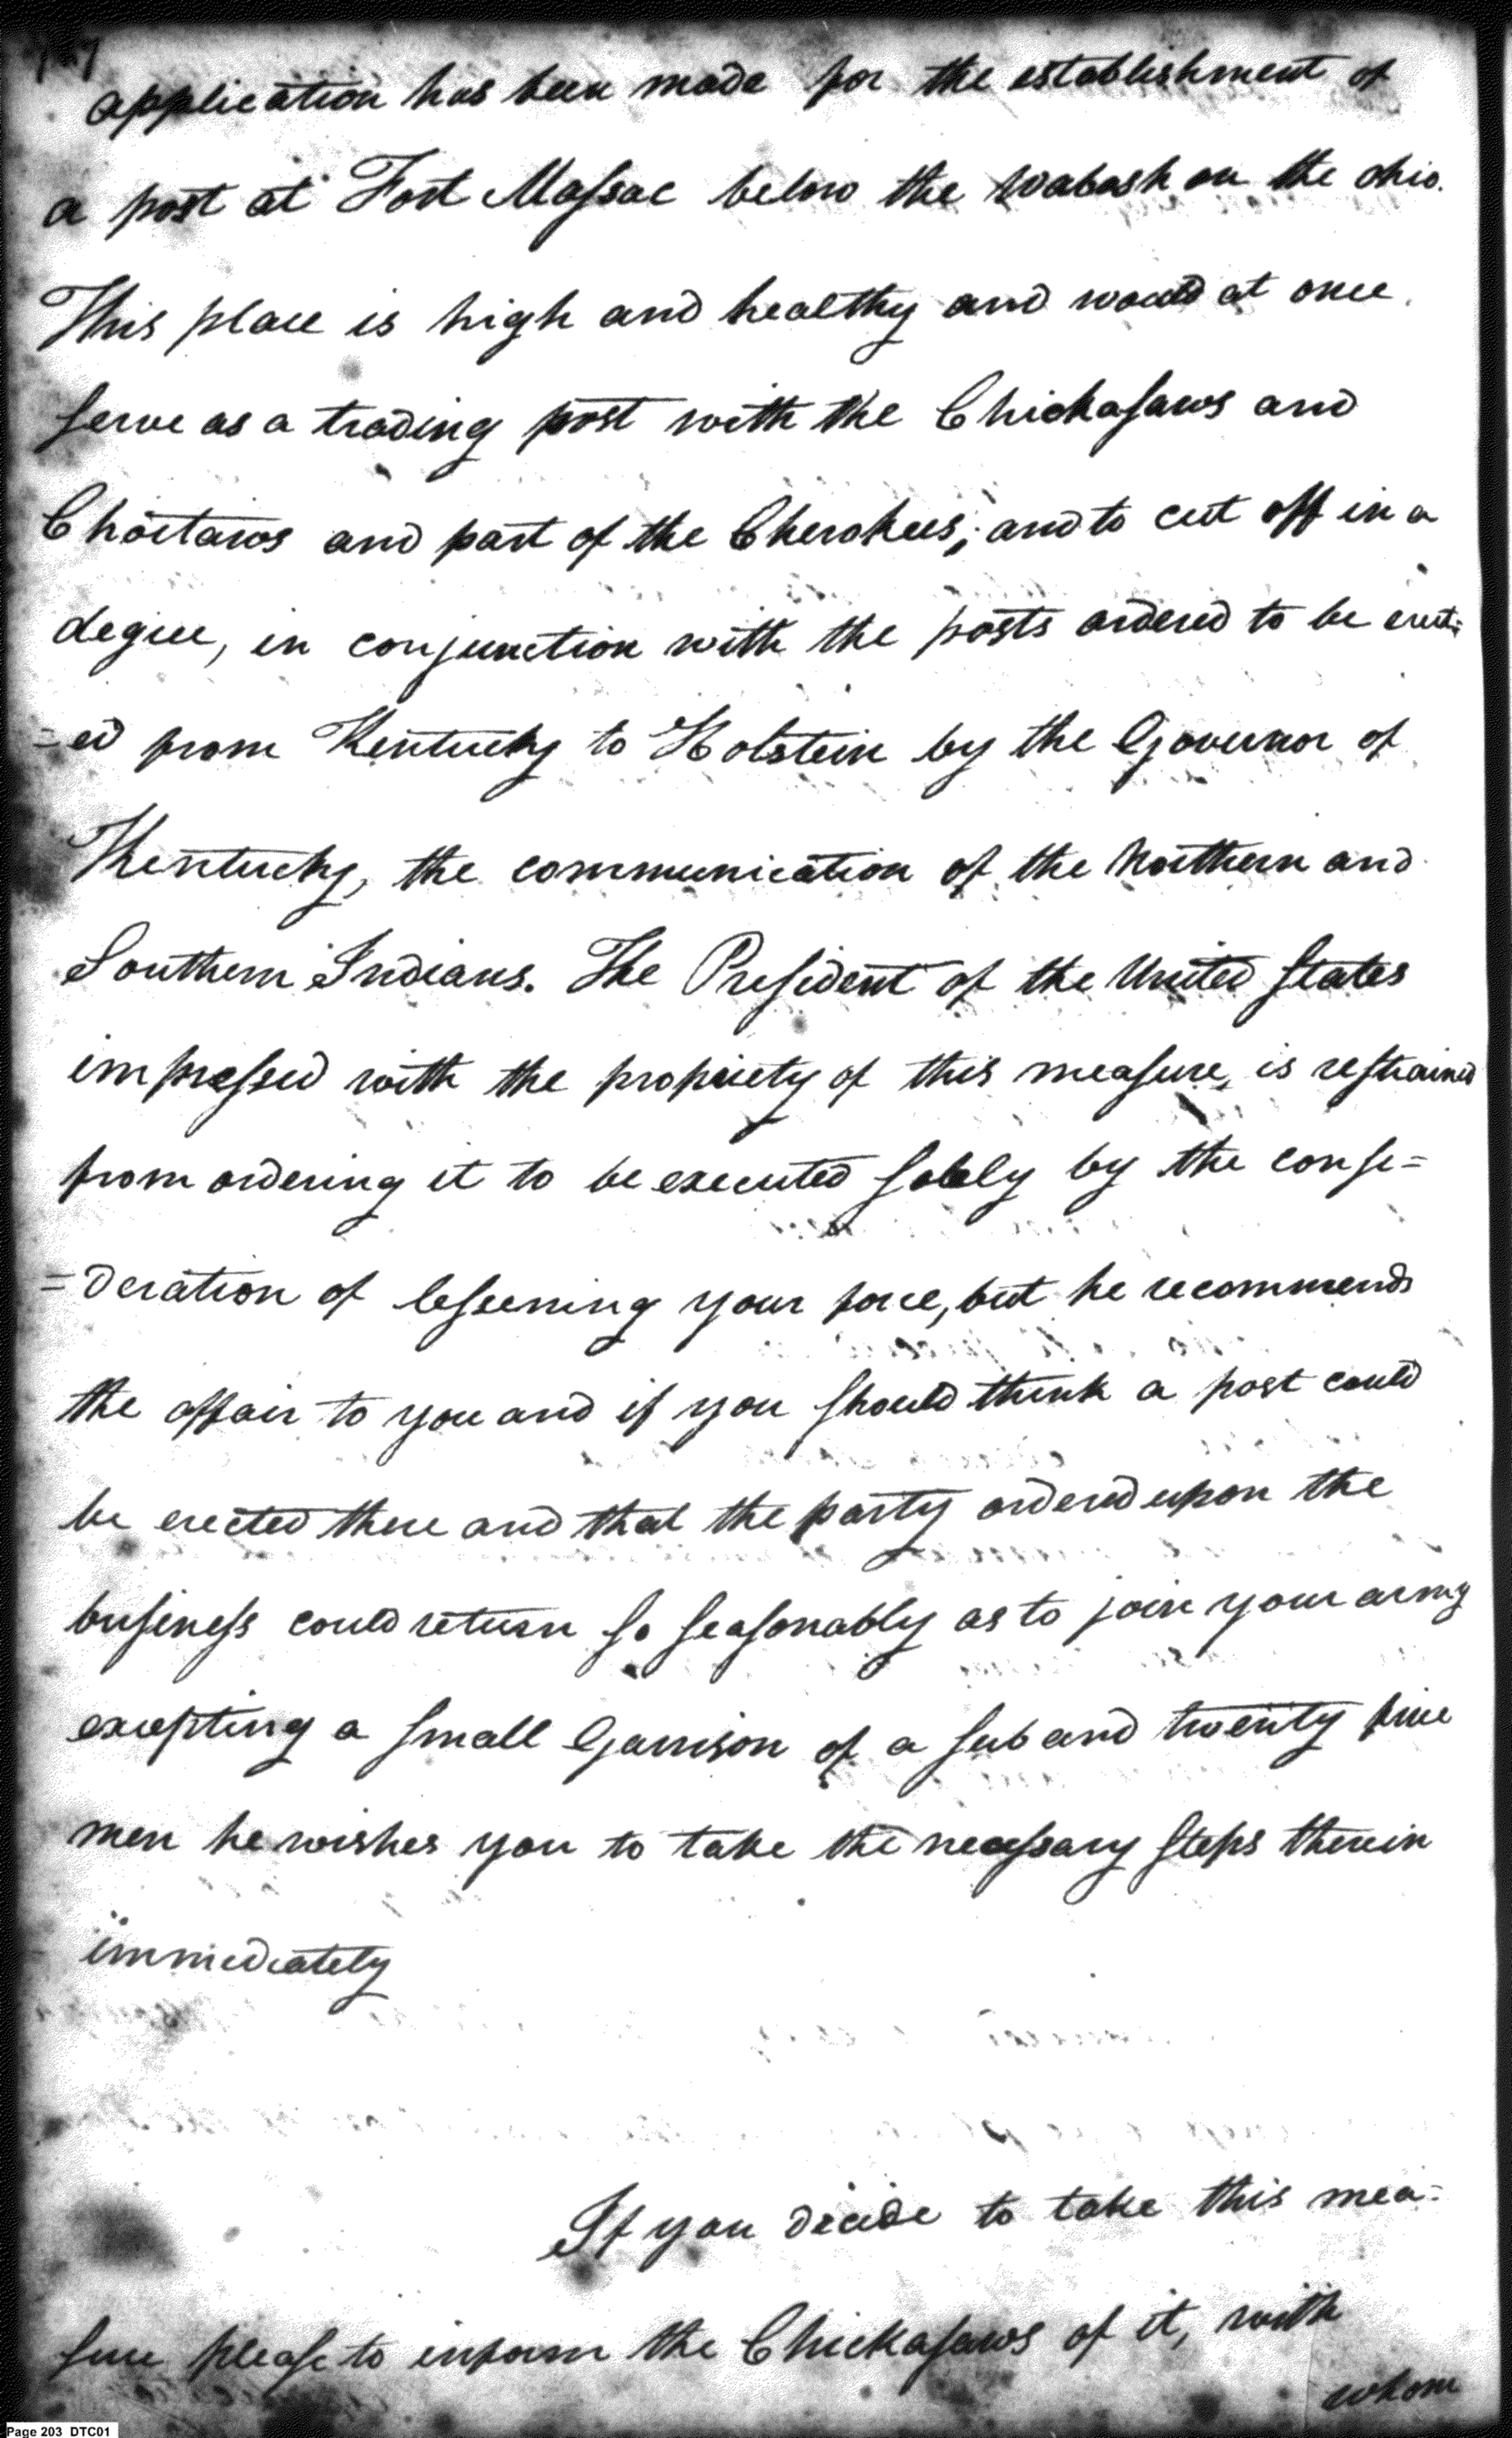 application has been made for the establishment of
a post at Fort Maſsac below the Wabash on the ohio.
This place is high and healthy and would at once
ſerve as a trading post with the Chickaſaws and
Choctaws and part of the Cherokees; and to cut off in a
degree, in conjunction with the posts ordered to be erect=
=ed from Kentucky to Holstein by the Governor of
Kentucky, the communication of the Northern and
Southern Indians. The Preſident of the United ſtates
impreſsed with the propriety of this meaſure, is reſtrained
from ordering it to be executed ſolely by the conſi=
=deration of leſsening your force, but he recommends
the affair to you and if you ſhould think a post could
be erected there and that the party ordered upon the
buſineſs could return ſo ſeaſonably as to join your army
excepting a ſmall Garrison of a ſub and twenty five
men he wishes you to take the neceſsary ſteps therein
immediately
If you decide to take this mea=
ſure pleaſe to inform the Chickaſaws of it, with
whom
Page 203 DTC01